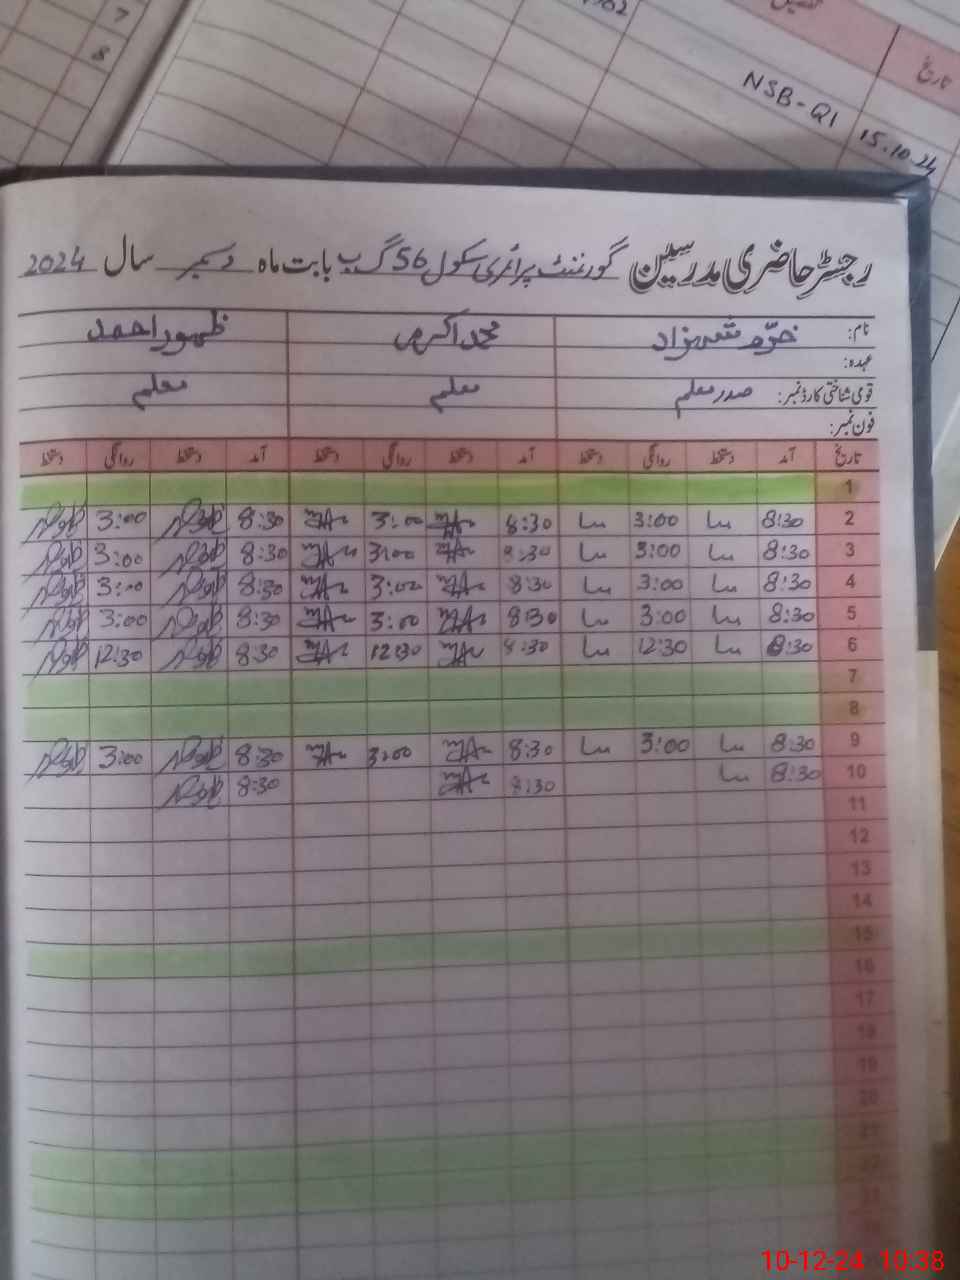 7
8
تاریخ
NSB-Q1 15.10.24
رجسٹر حاضری مدرسین گورنمنٹ پرائمری سکول 56 گ ب بابت ماہ دسمبر سال 2024
نام: خرم شہزاد محمد اکرم ظہور احمد
عہدہ:
قومی شناختی کارڈ نمبر: صدر معلم معلم معلم
فون نمبر:
تاریخ آمد دستخط روانگی دستخط آمد دستخط روانگی دستخط آمد دستخط روانگی دستخط
1
2 8:30 3:00 8:30 3:00 8:30 3:00
3 8:30 3:00 8:30 3:00 8:30 3:00
4 8:30 3:00 8:30 3:00 8:30 3:00
5 8:30 3:00 8:30 3:00 8:30 3:00
6 8:30 12:30 8:30 12:30 8:30 12:30
7
8
9 8:30 3:00 8:30 3:00 8:30 3:00
10 8:30 8:30 8:30
11
12
13
14
15
16
17
18
19
20
21
22
23
10-12-24 10:38